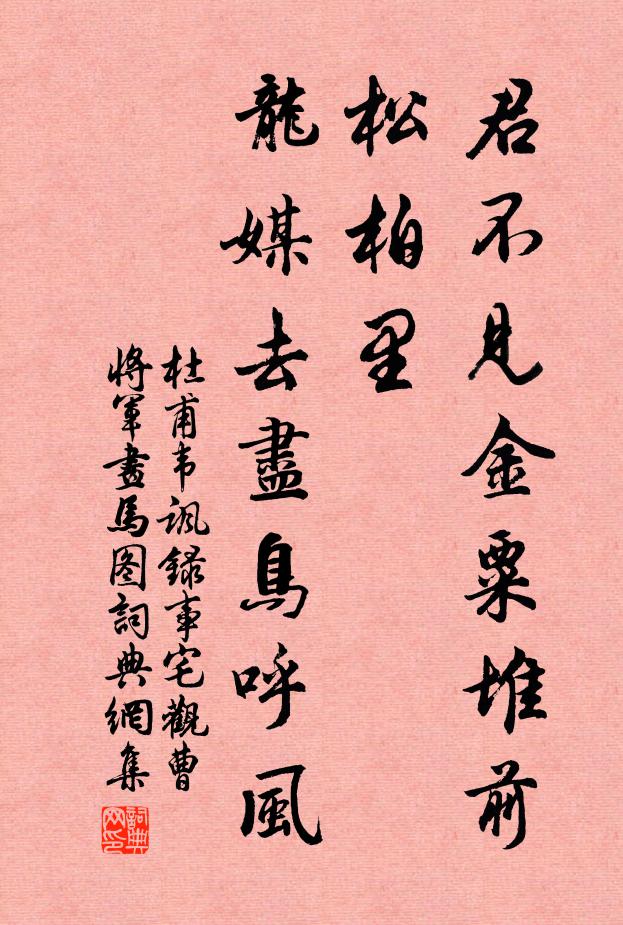 君不見金粟堆前
松柏里
龍媒去盡鳥呼風
杜甫韦諷録事宅觀曹
將軍畫馬图詞典網集
詞典网印